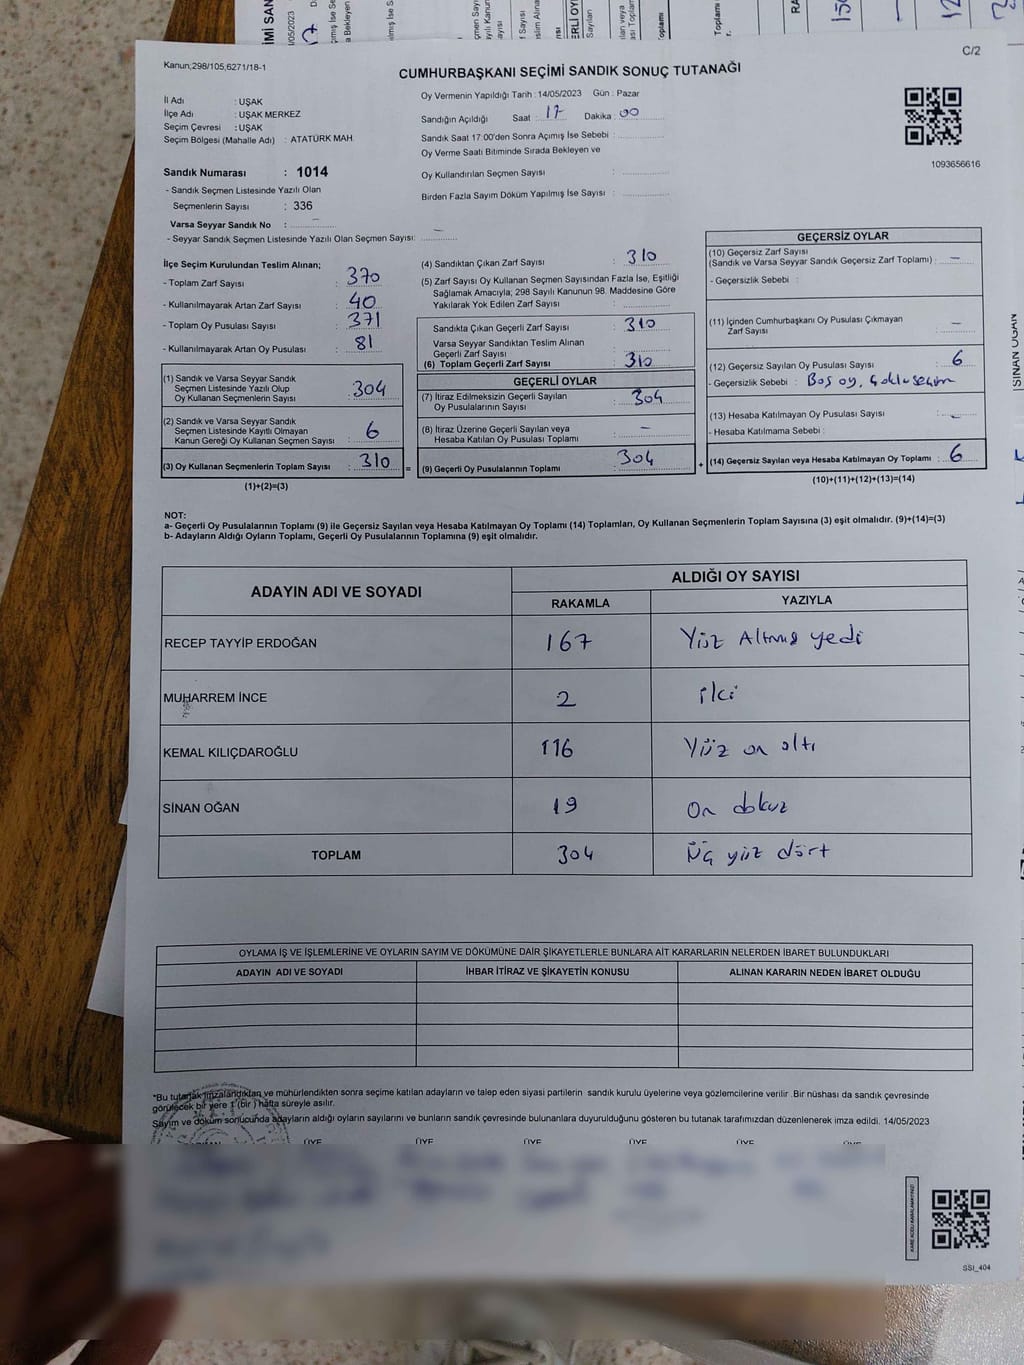 Kanun;298/105;6271/18-1
C/2
CUMHURBAŞKANI SEÇİMİ SANDIK SONUÇ TUTANAĞI
İl Adı : UŞAK
İlçe Adı : UŞAK MERKEZ
Seçim Çevresi : UŞAK
Seçim Bölgesi (Mahalle Adı) : ATATÜRK MAH.
Oy Vermenin Yapıldığı Tarih : 14/05/2023 Gün : Pazar
Sandığın Açıldığı Saat : 17 Dakika : 00
Sandık Saat 17:00'den Sonra Açımış İse Sebebi :
Oy Verme Saati Bitiminde Sırada Bekleyen ve
Oy Kullandırılan Seçmen Sayısı :
Birden Fazla Sayım Döküm Yapılmış İse Sayısı :
1093656616
Sandık Numarası : 1014
- Sandık Seçmen Listesinde Yazılı Olan
Seçmenlerin Sayısı : 336
Varsa Seyyar Sandık No : –
- Seyyar Sandık Seçmen Listesinde Yazılı Olan Seçmen Sayısı: –
İlçe Seçim Kurulundan Teslim Alınan;
- Toplam Zarf Sayısı : 370
- Kullanılmayarak Artan Zarf Sayısı : 40
- Toplam Oy Pusulası Sayısı : 371
- Kullanılmayarak Artan Oy Pusulası : 81
(1) Sandık ve Varsa Seyyar Sandık
Seçmen Listesinde Yazılı Olup
Oy Kullanan Seçmenlerin Sayısı : 304
(2) Sandık ve Varsa Seyyar Sandık
Seçmen Listesinde Kayıtlı Olmayan
Kanun Gereği Oy Kullanan Seçmen Sayısı : 6
(3) Oy Kullanan Seçmenlerin Toplam Sayısı : 310 =
(1)+(2)=(3)
(4) Sandıktan Çıkan Zarf Sayısı : 310
(5) Zarf Sayısı Oy Kullanan Seçmen Sayısından Fazla İse, Eşitliği
Sağlamak Amacıyla; 298 Sayılı Kanunun 98. Maddesine Göre
Yakılarak Yok Edilen Zarf Sayısı :
Sandıkta Çıkan Geçerli Zarf Sayısı : 310
Varsa Seyyar Sandıktan Teslim Alınan
Geçerli Zarf Sayısı :
(6) Toplam Geçerli Zarf Sayısı : 310
GEÇERLİ OYLAR
(7) İtiraz Edilmeksizin Geçerli Sayılan
Oy Pusulalarının Sayısı : 304
(8) İtiraz Üzerine Geçerli Sayılan veya
Hesaba Katılan Oy Pusulası Toplamı : –
(9) Geçerli Oy Pusulalarının Toplamı : 304 +
GEÇERSİZ OYLAR
(10) Geçersiz Zarf Sayısı
(Sandık ve Varsa Seyyar Sandık Geçersiz Zarf Toplamı) : –
- Geçersizlik Sebebi :
(11) İçinden Cumhurbaşkanı Oy Pusulası Çıkmayan
Zarf Sayısı : –
(12) Geçersiz Sayılan Oy Pusulası Sayısı : 6
- Geçersizlik Sebebi : Boş oy, Çoklu seçim
(13) Hesaba Katılmayan Oy Pusulası Sayısı : –
- Hesaba Katılmama Sebebi :
(14) Geçersiz Sayılan veya Hesaba Katılmayan Oy Toplamı : 6
(10)+(11)+(12)+(13)=(14)
NOT:
a- Geçerli Oy Pusulalarının Toplamı (9) ile Geçersiz Sayılan veya Hesaba Katılmayan Oy Toplamı (14) Toplamları, Oy Kullanan Seçmenlerin Toplam Sayısına (3) eşit olmalıdır. (9)+(14)=(3)
b- Adayların Aldığı Oyların Toplamı, Geçerli Oy Pusulalarının Toplamına (9) eşit olmalıdır.
ADAYIN ADI VE SOYADI ALDIĞI OY SAYISI
RAKAMLA YAZIYLA
RECEP TAYYİP ERDOĞAN 167 Yüz Altmış yedi
MUHARREM İNCE 2 iki
KEMAL KILIÇDAROĞLU 116 Yüz on altı
SİNAN OĞAN 19 On dokuz
TOPLAM 304 Üç yüz dört
OYLAMA İŞ VE İŞLEMLERİNE VE OYLARIN SAYIM VE DÖKÜMÜNE DAİR ŞİKAYETLERLE BUNLARA AİT KARARLARIN NELERDEN İBARET BULUNDUKLARI
ADAYIN ADI VE SOYADI İHBAR İTİRAZ VE ŞİKAYETİN KONUSU ALINAN KARARIN NEDEN İBARET OLDUĞU
*Bu tutanak imzalandıktan ve mühürlendikten sonra seçime katılan adayların ve talep eden siyasi partilerin sandık kurulu üyelerine veya gözlemcilerine verilir .Bir nüshası da sandık çevresinde
görülecek bir yere 1 (bir ) hafta süreyle asılır.
Sayım ve döküm sonucunda adayların aldığı oyların sayılarını ve bunların sandık çevresinde bulunanlara duyurulduğunu gösteren bu tutanak tarafımızdan düzenlenerek imza edildi. 14/05/2023
ÜYE ÜYE ÜYE ÜYE ÜYE ÜYE
SSI_404
SİNAN OĞAN